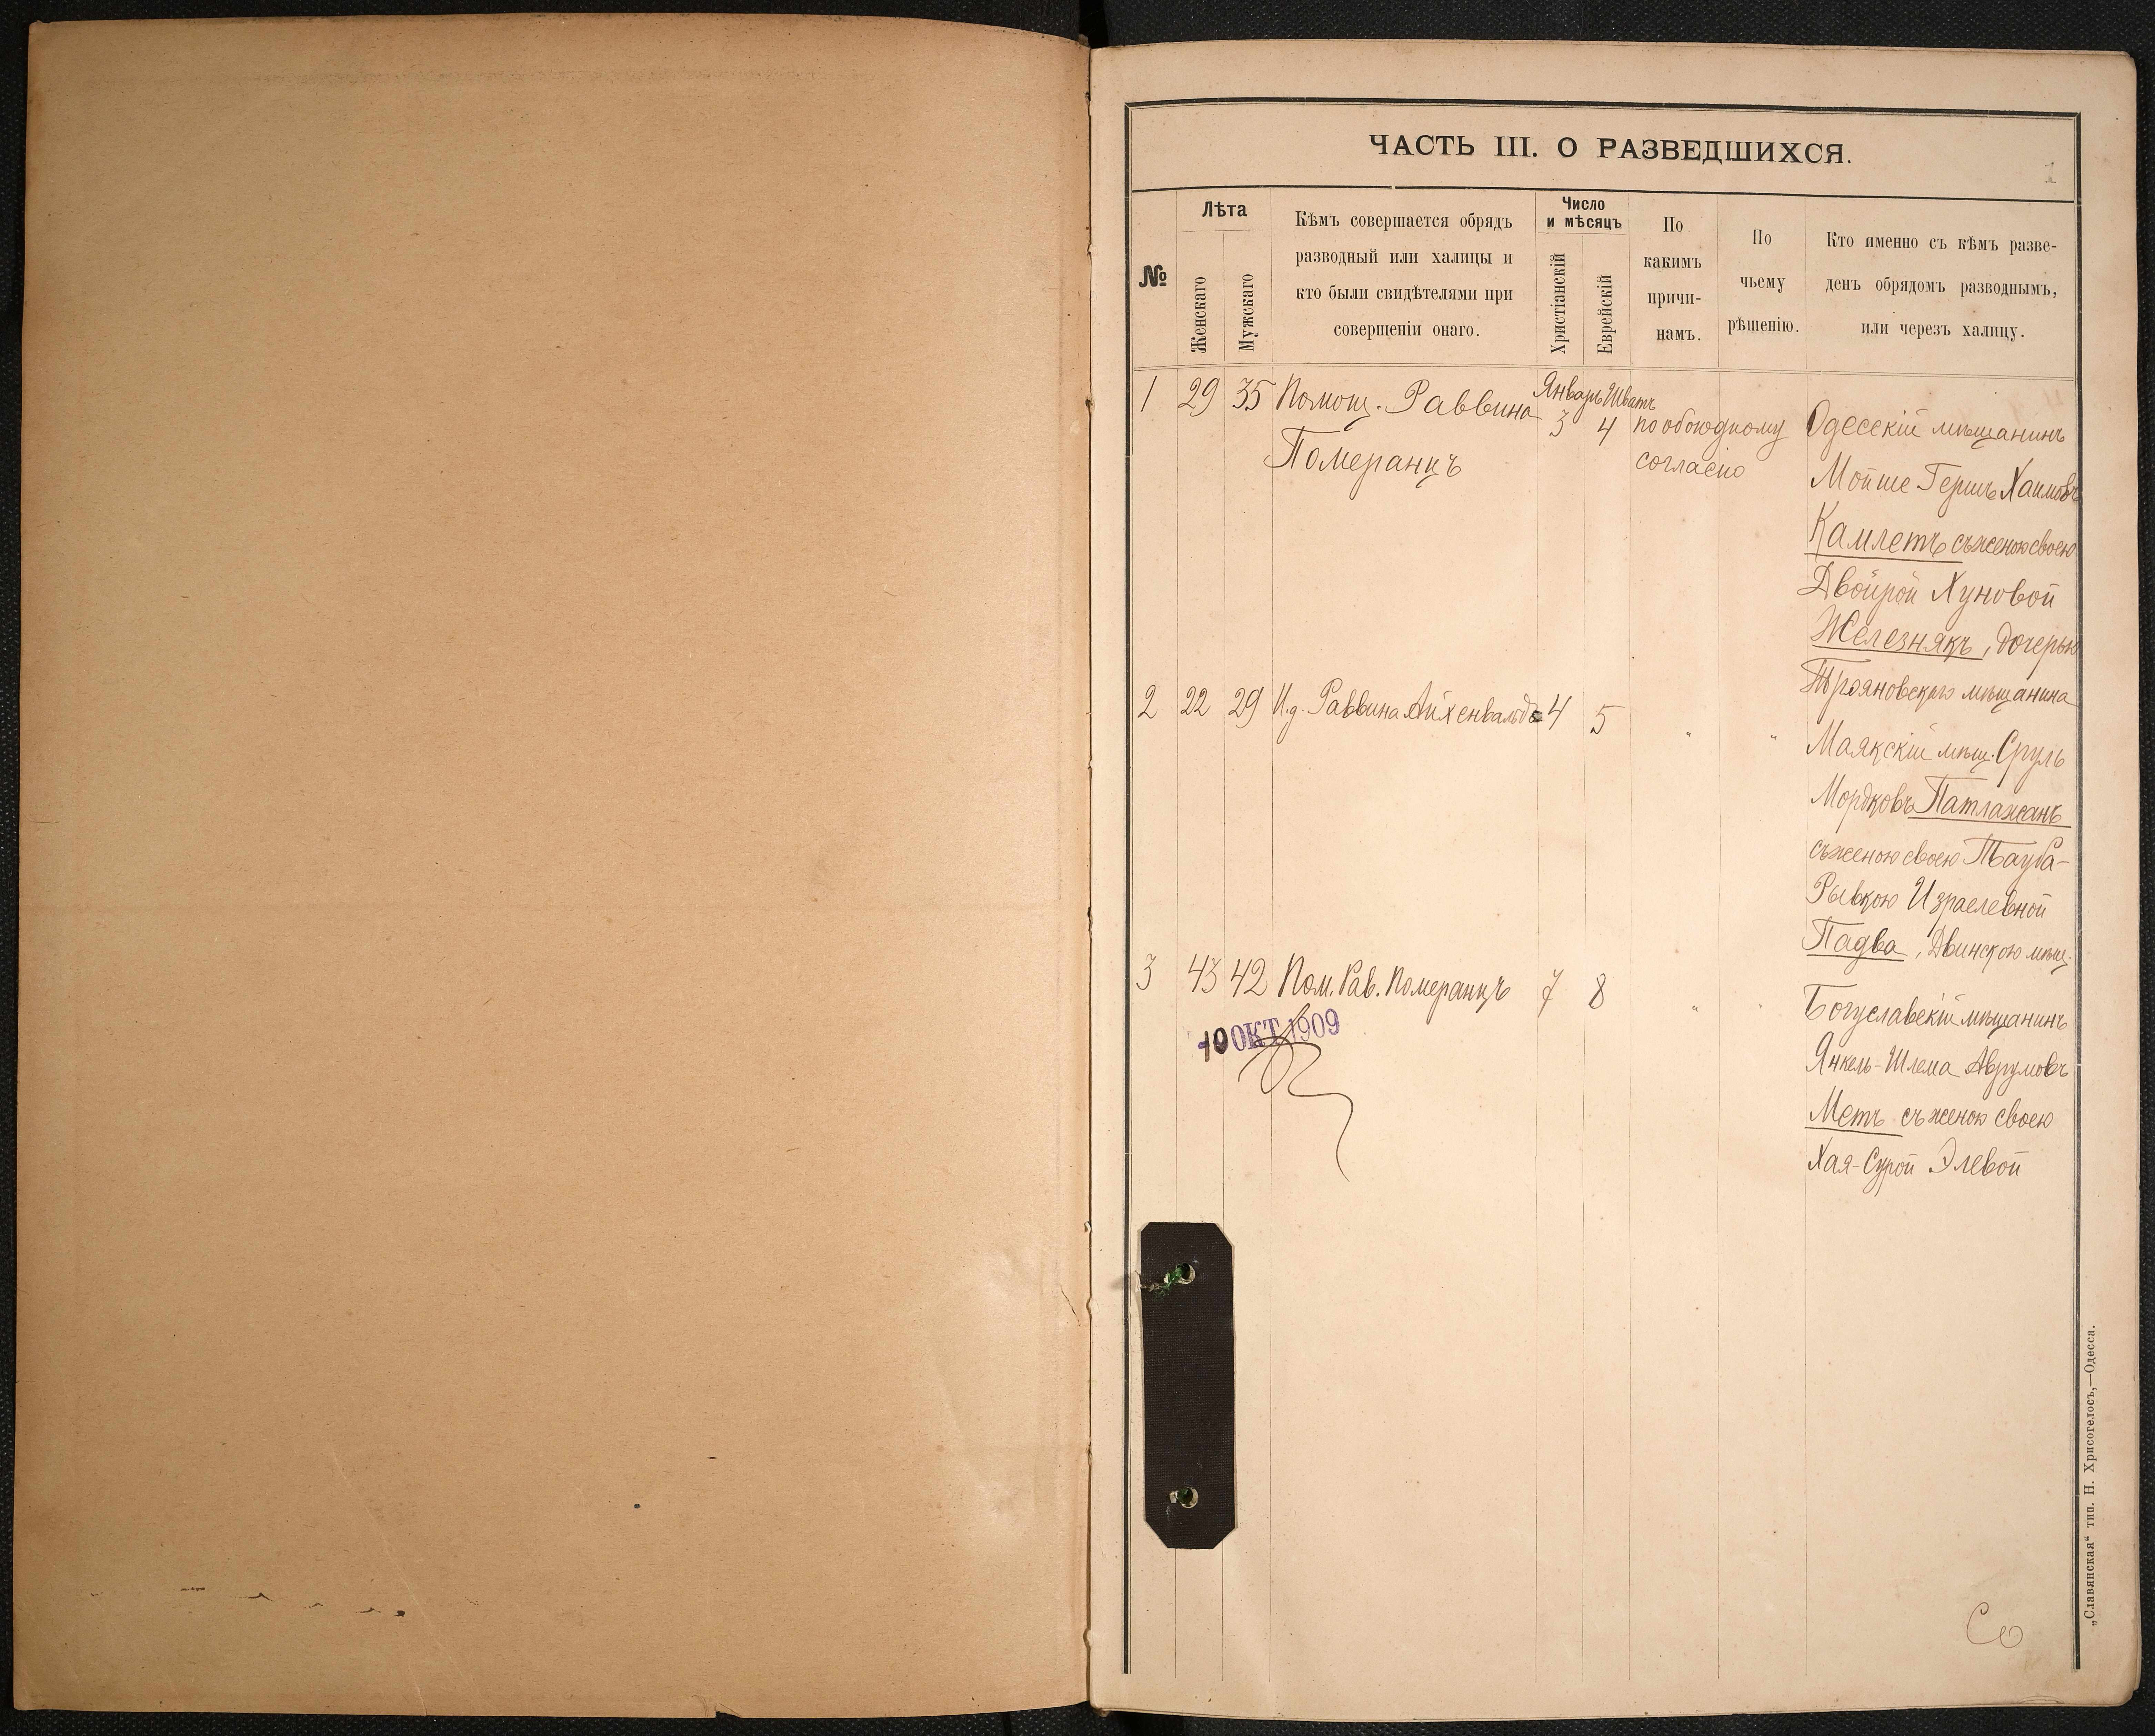 ЧАСТЬ III. О РАЗВЕДШИХСЯ.
1
№
Лѣта
Женскаго
Мужскаго
Кѣмъ совершается обрядъ
разводный или халицы и
кто были свидѣтелями при
совершеніи онаго.
Число
и мѣсяцъ
Христіанскій
Еврейскій
По
какимъ
причи-
намъ.
По
чьему
рѣшенію.
Кто именно съ кѣмъ разве-
денъ обрядомъ разводнымъ,
или черезъ халицу.
1 29 35 Помощ. Раввина
Померанцъ
Январь Шватъ
3 4
по обоюдному
согласію
Одесскій мѣщанинъ
Мойше Гершъ Хаимовъ
Камлетъ съ женою своею
Двойрой Хуновой
Железнякъ, дочерью
Трояновскаго мѣщанина
2 22 29 И.д. Раввина Айхенвальдъ 4 5 " "
Маякскій мѣщ. Сруль
Мордковъ Патлажанъ
съ женою своею Тауба-
Рывкою Израелевной
Падва, Двинскою мѣщ.
3 43 42 Пом. Рав. Померанцъ 7 8 " "
10 ОКТ 1909
Богуславскій мѣщанинъ
Янкель-Шлема Аврумовъ
Метъ съ женою своею
Хая-Сурой Элевой
Со
„Славянская“ тип. Н. Хрисогелосъ,—Одесса.